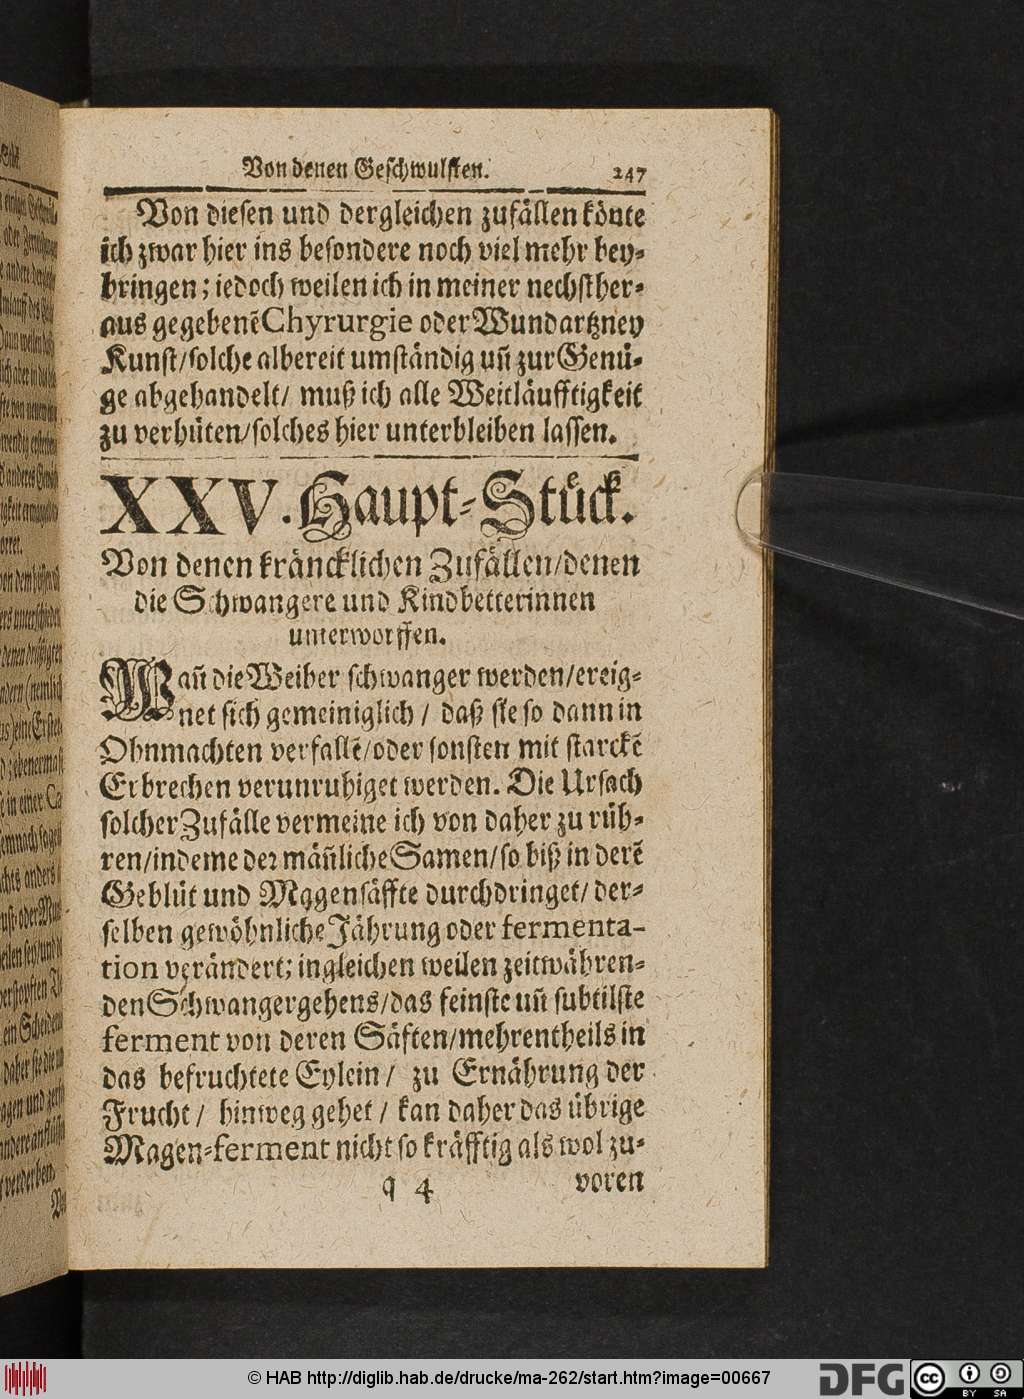 Von denen Geschwulsten. 247
Von diesen und dergleichen zufällen könte
ich zwar hier ins besondere noch viel mehr bey-
bringen; iedoch weilen ich in meiner nechst her-
aus gegebenẽ Chyrurgie oder Wundartzney
Kunst/ solche albereit umständig uñ zur Genü-
ge abgehandelt/ muß ich alle Weitläufftigkeit
zu verhüten/ solches hier unterbleiben lassen.
XXV. Haupt-Stück.
Von denen kräncklichen Zufällen/ denen
die Schwangere und Kindbetterinnen
unterworffen.
Wañ die Weiber schwanger werden/ ereig-
net sich gemeiniglich / daß sie so dann in
Ohnmachten verfallẽ/ oder sonsten mit starckẽ
Erbrechen verunruhiget werden. Die Ursach
solcher Zufälle vermeine ich von daher zu rüh-
ren/ indeme der mäñliche Samen/ so biß in derẽ
Geblüt und Magensäffte durchdringet/ der-
selben gewöhnliche Jährung oder fermenta-
tion verändert; ingleichen weilen zeitwähren-
den Schwangergehens/ das feinste uñ subtilste
ferment von deren Säften/ mehrentheils in
das befruchtete Eylein / zu Ernährung der
Frucht / hinweg gehet / kan daher das übrige
Magen-ferment nicht so kräfftig als wol zu-
q 4 voren
© HAB http://diglib.hab.de/drucke/ma-262/start.htm?image=00667
DFG
cc BY SA